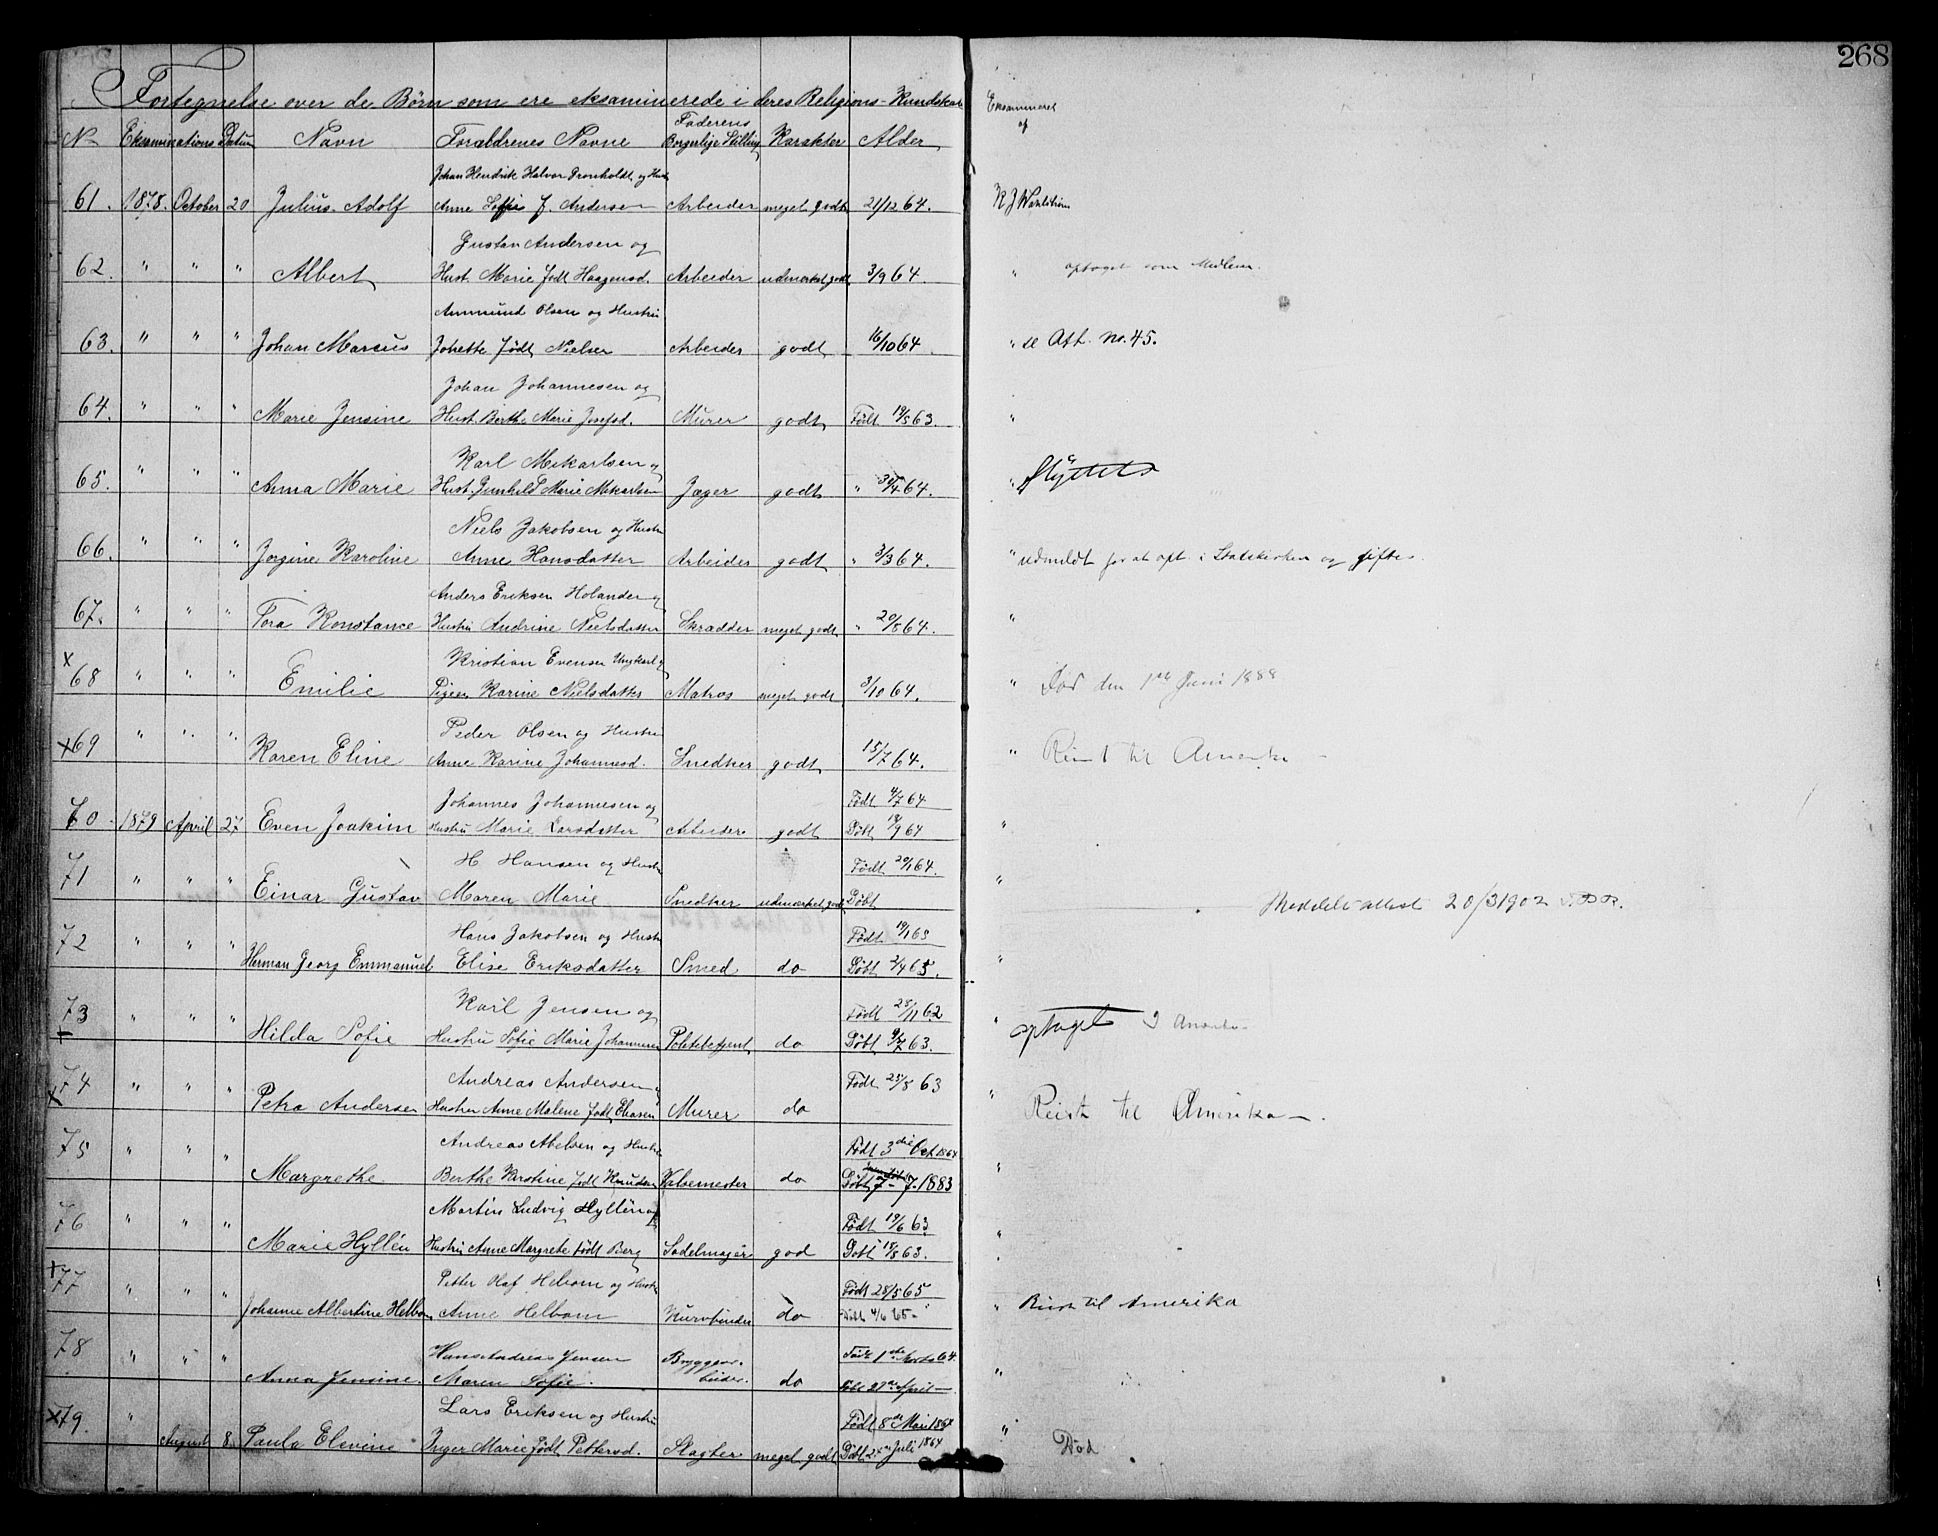 268
Fortegnelse over de Børn som ere eksaminerede i deres Religions-Kundskab
Eksamineret af
No Eksaminations Datum Navn Forældrenes Navne Faderens Borgerlige Stilling Karakter Alder
Johan Hendrik Halvor Tronholdt og Hust.
61. 1878. October 20 Julius Adolf Anne Sofie f. Andersen Arbeider meget godt 21/12 64. K J Wahlstrøm
Gustav Andersen og
62. " " " Albert Hust. Marie født Haagensd. Arbeider udmærket godt 3/9 64. " optaget som Medlem.
Ammund Olsen og Hustru
63. " " " Johan Marcus Johette født Nielsen Arbeider godt 16/10 64. " se Att. no. 45.
Johan Johannesen og
64. " " " Marie Jensine Hust. Berthe Marie Josefsd. Murer godt Født 19/5 63. "
Karl Mikarlsen og
65. " " " Anna Marie Hust. Gunhild Marie Mikarlsen Jæger godt " 30/4 64. " flyttet
Niels Jakobsen og Hustru
66. " " " Jorgine Karoline Anne Hansdatter Arbeider godt " 3/3 64. " udmeldt for at opt. i Statskirken og gifte
Anders Eriksen Holander og
67. " " " Tora Konstance Hustru Andrine Nielsdatter Skrædder meget godt " 20/8 64. "
Kristian Evensen Ungkarl og
x 68 " " " Emilie Pigen Karine Nielsdatter Matros meget godt 3/10 64. " Død den 1ste Juni 1888
Peder Olsen og Hustru
x 69 " " " Karen Eline Anne Karine Johannesd. Snedker godt 15/7 64. " Reist til Amerika
Johannes Johannesen og Født 4/7 64
70. 1879 April 27 Even Joakim Hustru Marie Larsdatter Arbeider godt Døbt 18/9 64 "
H Hansen og Hustru Født 20/1 64.
71 " " " Einar Gustav Maren Marie Snedker udmærket godt Døbt "
Meddelt attest 20/3 1902
Hans Jakobsen og Hustru Født 19/1 65
72 " " " Herman Georg Emmanuel Elise Eriksdatter Smed do Døbt 2/4 65. "
Karl Jensen og Født 28/11 62
73 " " " Hilda Sofie Hustru Sofie Marie Johannesen Politibetjent do Døbt 9/2 63. " optaget I Amerika
Andreas Andersen og Født 25/8 63
x 74 " " " Petra Andersen Hustru Anne Malene født Eliasen Murer do " Reist til Amerika
Andreas Abelsen og Hustru Født 3die Oct 1864
75 " " " Margrethe Berthe Karstine født Knudsen Valsemester do Døbt 7-7-1883 "
Martin Ludvig Hyllén og Født 19/6 63
76 " " " Marie Hyllén Hustru Anne Margrete født Berg Sadelmager god Døbt 18/8 63. "
Petter Olaf Helbom og Hustr. Født 25/5 65
x 77 " " " Johanne Albertine Helbom Anne Helbom Kurvbinder do Døbt 4/6 65 " Reist til Amerika
Hans Andreas Jensen Født 1ste Marts 64.
78 " " " Anna Jensine. Maren Sofie. Bryggearbeider. do Døbt 27de April "
Lars Eriksen og Hustru Født 8de Mai 1864
x 79. " August 8. Paula Elevine Inger Marie født Pettersd. Slagter meget godt Døbt 2den Juli 1864 " Død